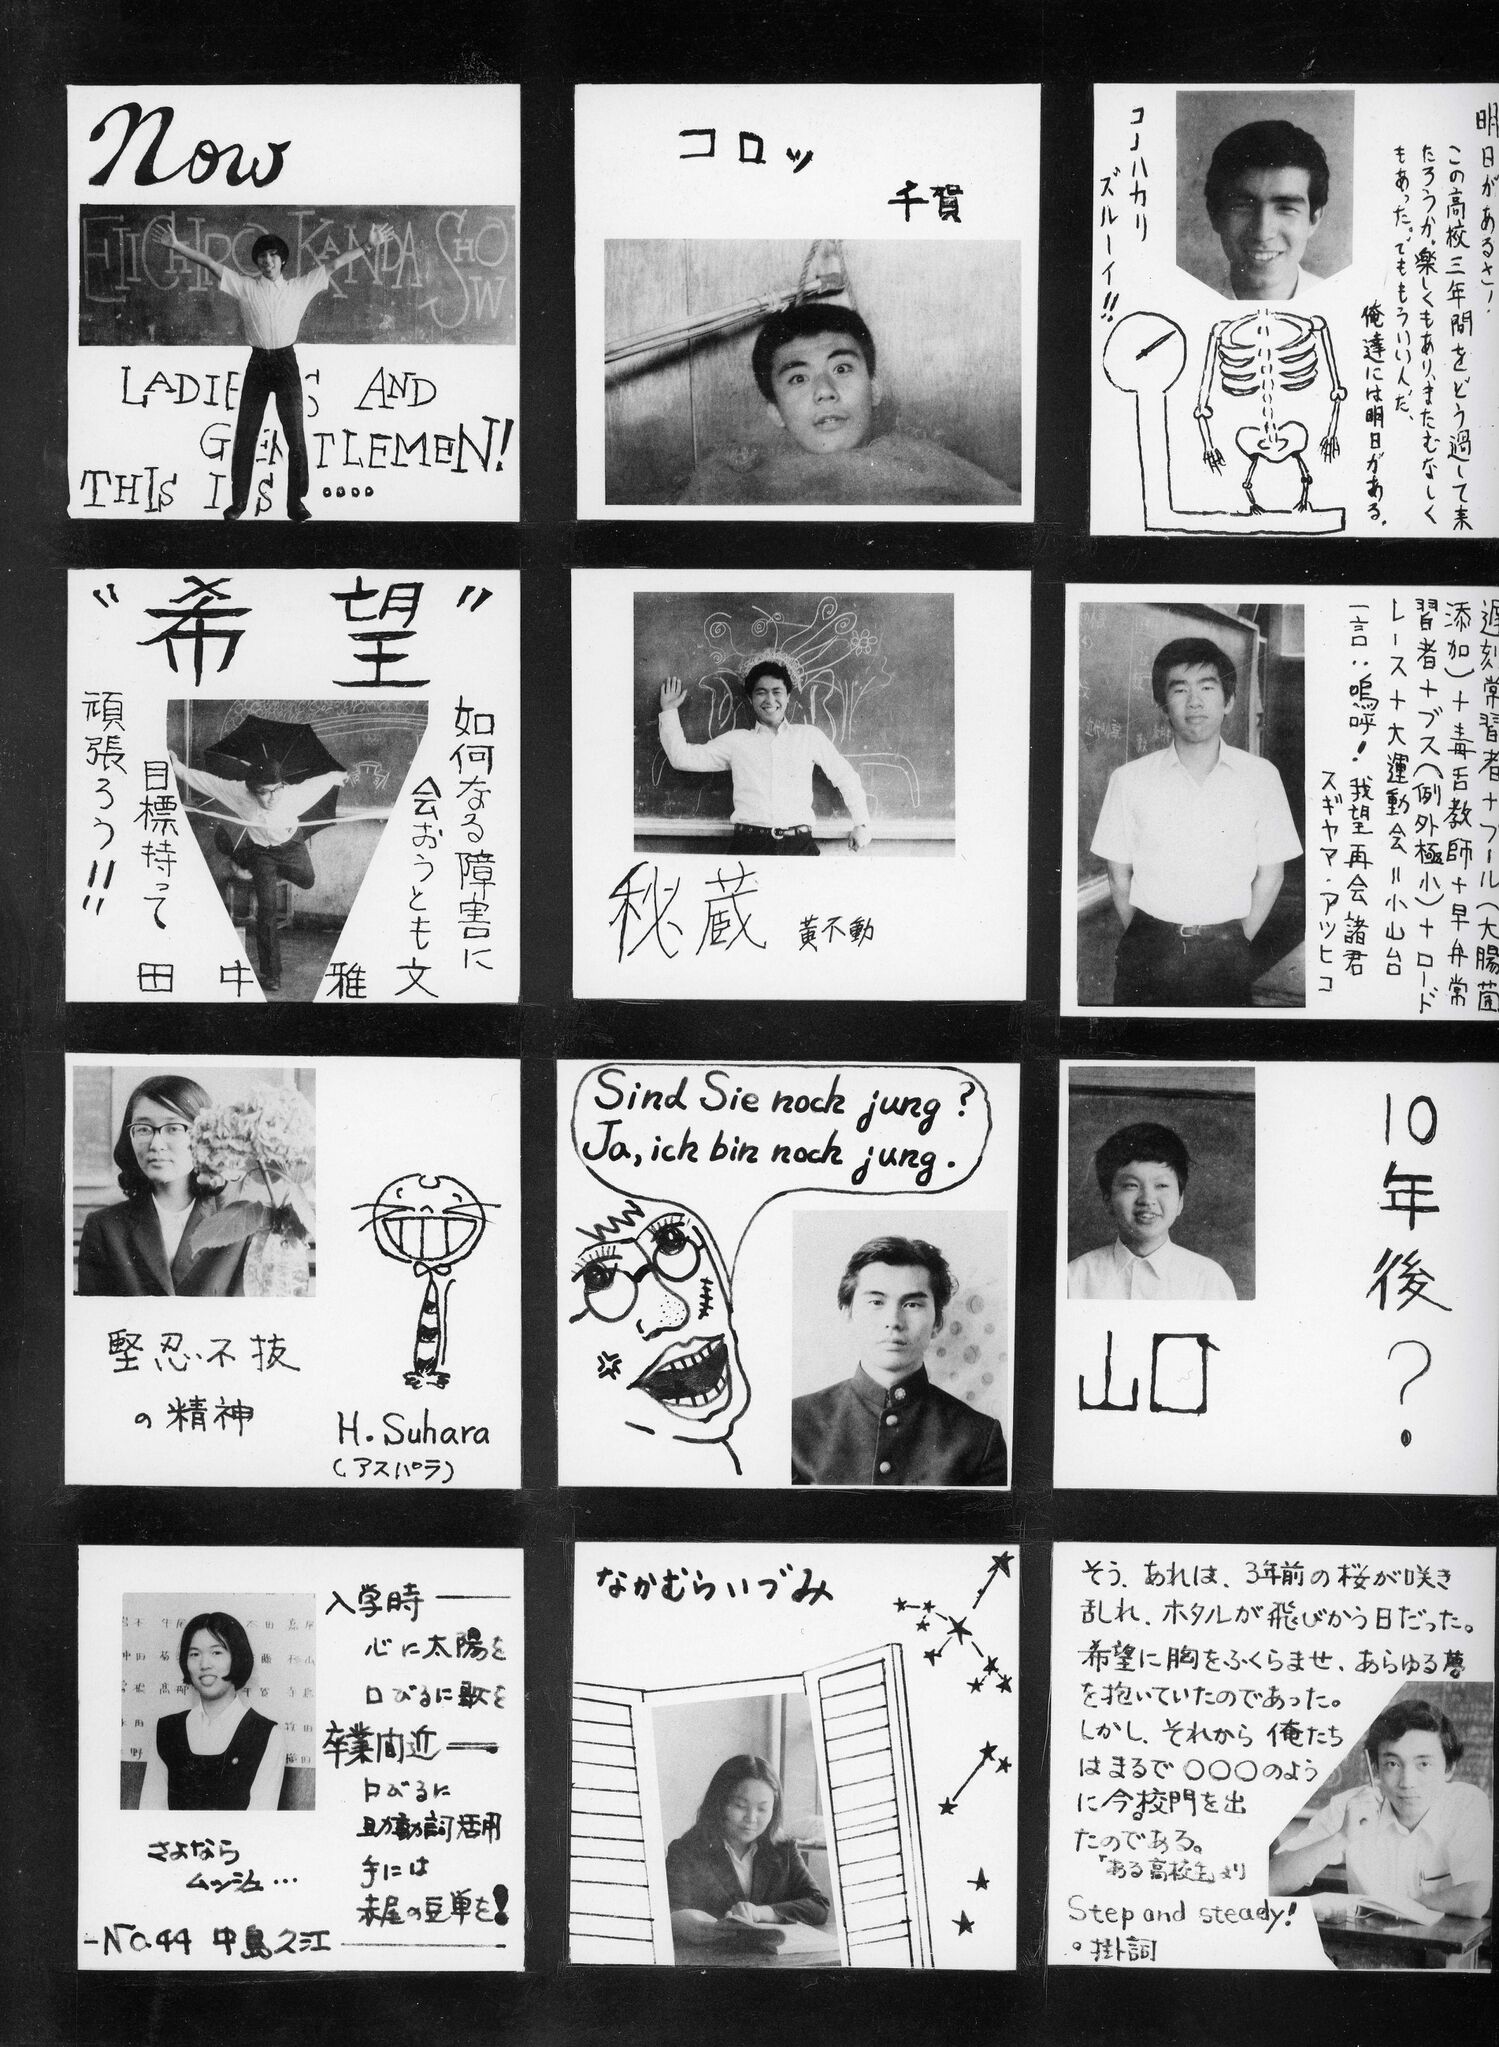 Now
EIICHIRO KANDA SHOW
LADIES AND
GENTLEMEN!
THIS IS ‥‥
コロッ
千賀
明日があるさ!
この高校三年間をどう過して来
たろうか。楽しくもあり、またむなしく
もあった。でももういいんだ、
俺達には明日がある。
コノハカリ
ズルーイ!!
"希望"
如何なる障害に
会おうとも
目標持って
頑張ろう!!
田中雅文
秘蔵
黄不動
遅刻常習者+プール(大腸菌
添加)+毒舌教師+早弁常
習者+ブス(例外極小)+ロード
レース+大運動会=小山台
一言:嗚呼!我望再会諸君
スギヤマ・アツヒコ
堅忍不抜
の精神
H. Suhara
(アスパラ)
Sind Sie noch jung?
Ja, ich bin noch jung.
10年後?
山口
入学時──
心に太陽を
口びるに歌を
卒業間近──
口びるに
助動詞活用
手には
赤尾の豆単を!
さよなら
ムッシュ…
-No.44 中島久江
なかむらいづみ
そう、あれは、3年前の桜が咲き
乱れ、ホタルが飛びかう日だった。
希望に胸をふくらませ、あらゆる夢
を抱いていたのであった。
しかし、それから俺たち
はまるで○○○のよう
に今。校門を出
たのである。
「ある高校生」より
Step and steady!
。掛詞